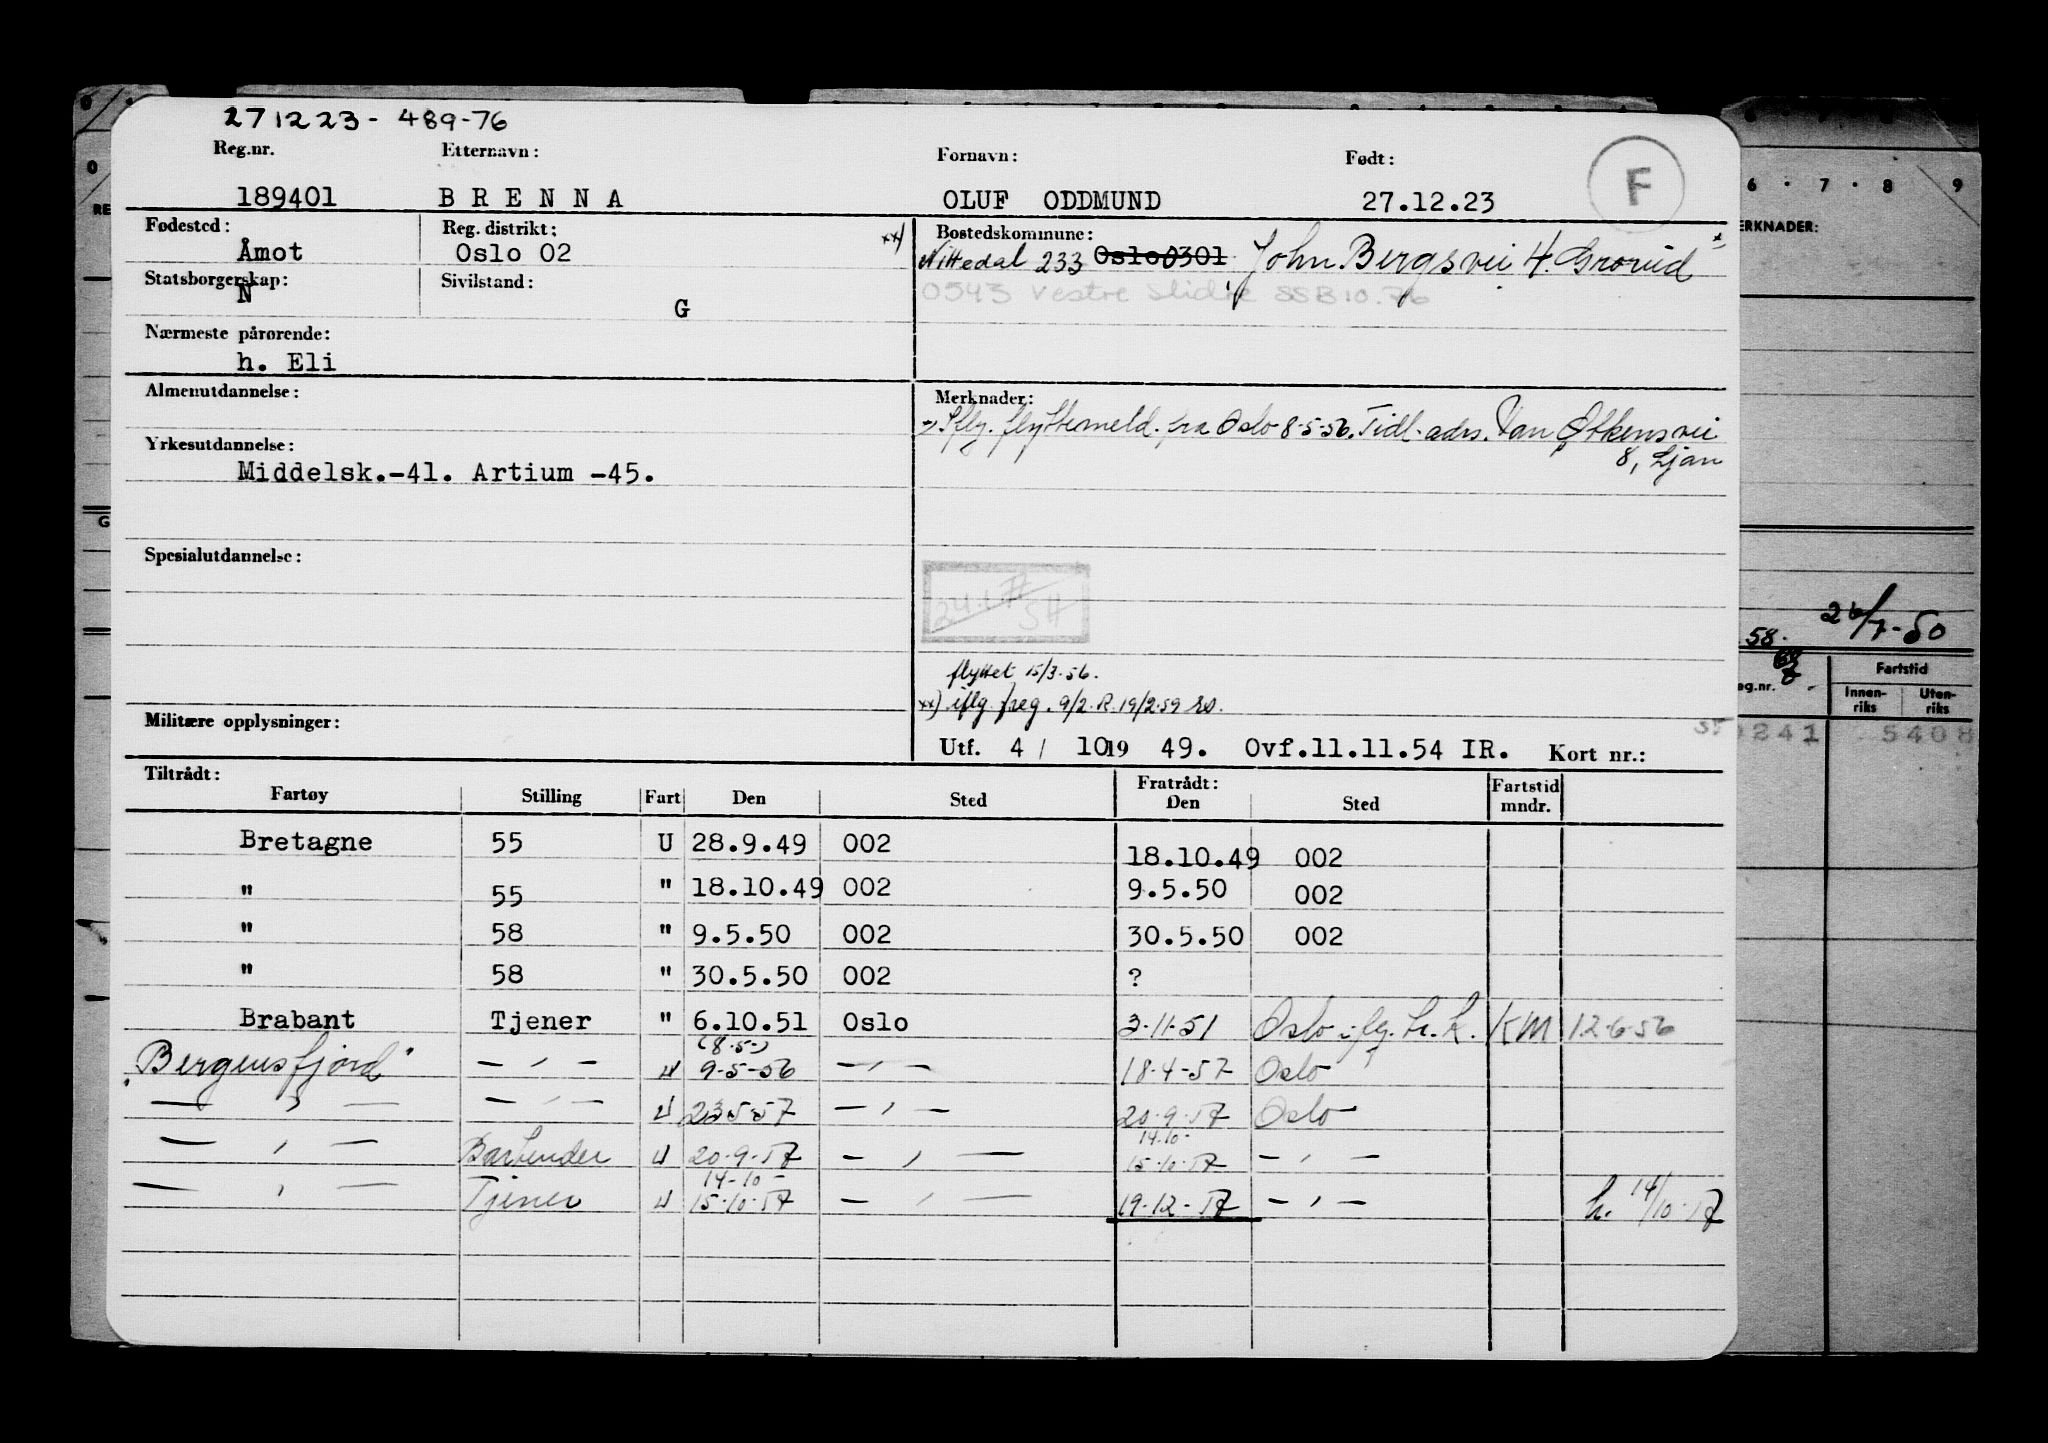 271223- 489-76
Reg.nr. Etternavn: Fornavn: Født:
189401 BRENNA OLUF ODDMUND 27.12.23 F
Fødested: Reg. distrikt: Bostedskommune:
Åmot Oslo 02 xx) Nittedal 233 Oslo 0301 John Bergsvei 4. Grorud x
Statsborgerskap: Sivilstand: 0543 Vestre Slidre SSB 10.76
N G
Nærmeste pårørende:
h. Eli
Almenutdannelse: Merknader:
Iflg. flyttemeld. fra Oslo 8-5-56. Tidl. adrs. Van
Yrkesutdannelse: 8, Ljan
Middelsk.-41. Artium -45.
Spesialutdannelse:
flyttet 15/3-56.
xx) iflg. freg. 9/2. R. 19/2-59
Militære opplysninger:
Utf. 4 / 10 19 49. Ovf.11.11.54 IR. Kort nr.:
Tiltrådt: Fratrådt: Fartstid
Fartøy Stilling Fart Den Sted Den Sted mndr.
Bretagne 55 U 28.9.49 002 18.10.49 002
" 55 " 18.10.49 002 9.5.50 002
" 58 " 9.5.50 002 30.5.50 002
" 58 " 30.5.50 002 ?
Brabant Tjener " 6.10.51 Oslo 3-11-51 Oslo iflg. h.k. KM 12-6-56
(8-5-)
"Bergensfjord" — " — U 9-5-56 — " — 18-4-57 Oslo
— " — — " — U 23-5-57 — " — 20-9-57 Oslo
14-10-
— " — Bartender U 20-9-57 — " — 15-10-57 — " —
14-10-
— " — Tjener U 15-10-57 — " — 19-12-57 — " — h. 14/10-57
6 7 8 9
ERKNADER:
58. 26/7-50
Fartstid
Innen-riks Uten-riks
0241 5408